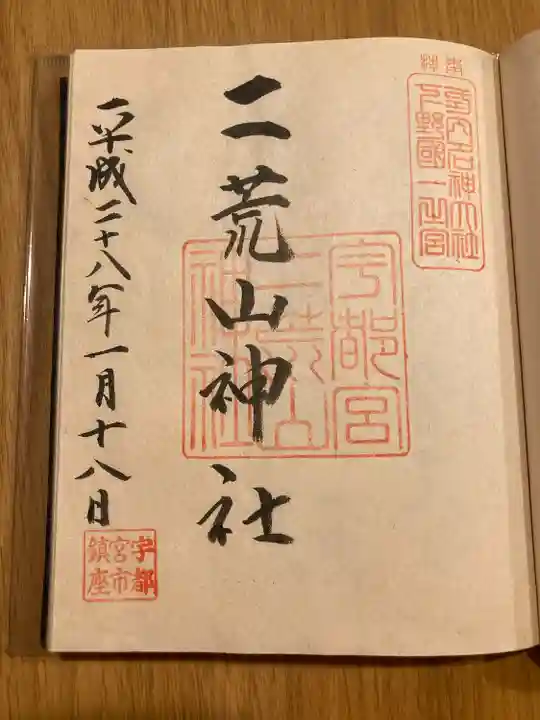 延喜式内名神大社
下野國一之宮
二荒山神社
宇都宮
二荒山
神社
平成二十八年一月十八日
宇都
宮市
鎮座